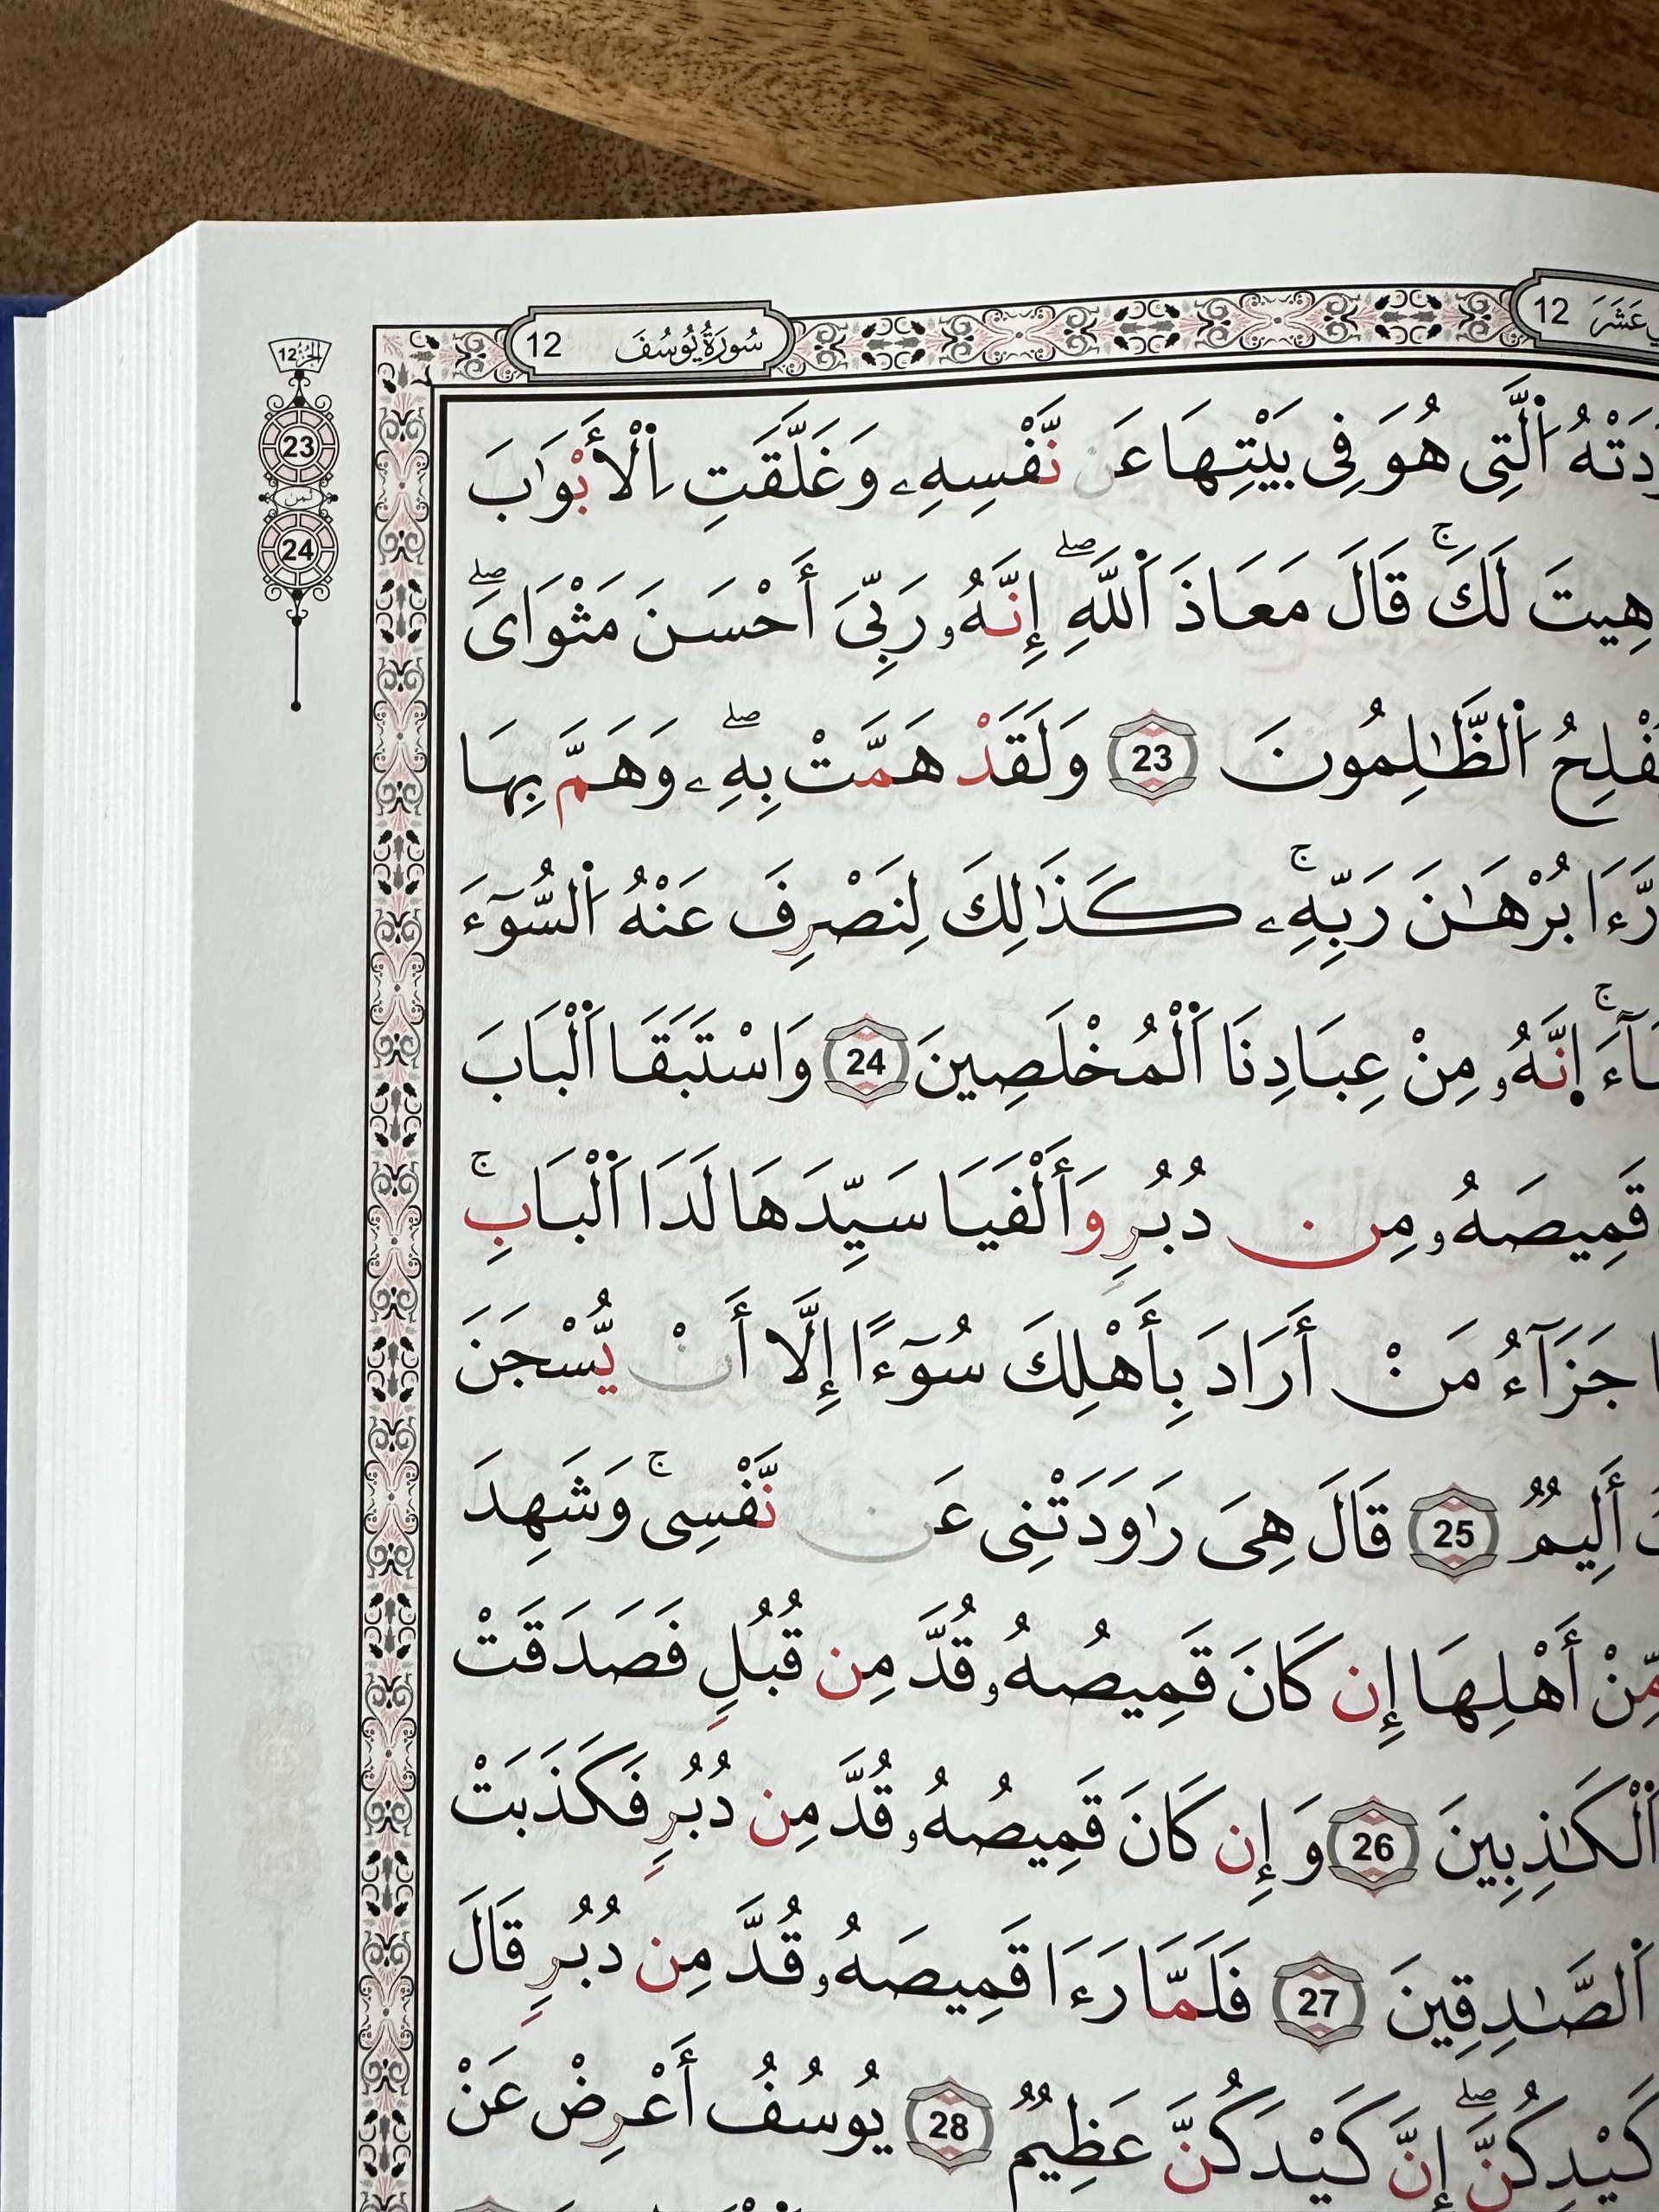 عَشَرَ 12
سُورَةُ يُوسُفَ 12
الجزء 12
23
ثمن
24
اَ۬لتِے هُوَ فِے بَيْتِهَا عَن نَّفْسِهِۦ وَغَلَّقَتِ اِ۬لْأَبْوَٰبَ
هِيتَ لَكَۖ قَالَ مَعَاذَ اَ۬للَّهِۖ إِنَّهُۥ رَبِّىَ أَحْسَنَ مَثْوَاىَۖ
اُ۬لظَّٰلِمُونَ 23 وَلَقَدْ هَمَّتْ بِهِۦۖ وَهَمَّ بِهَا
رَّءَا بُرْهَٰنَ رَبِّهِۦۚ كَذَٰلِكَ لِنَصْرِفَ عَنْهُ اُ۬لسُّوٓءَ
إِنَّهُۥ مِنْ عِبَادِنَا اَ۬لْمُخْلَصِينَ 24 وَاسْتَبَقَا اَ۬لْبَابَ
قَمِيصَهُۥ مِن دُبُرٍ وَأَلْفَيَا سَيِّدَهَا لَدَا اَ۬لْبَابِۚ
جَزَآءُ مَنْ أَرَادَ بِأَهْلِكَ سُوٓءًا إِلَّا أَنْ يُّسْجَنَ
أَلِيمٌ 25 قَالَ هِىَ رَٰوَدَتْنِى عَن نَّفْسِىۚ وَشَهِدَ
مِّنْ أَهْلِهَا إِن كَانَ قَمِيصُهُۥ قُدَّ مِن قُبُلٍ فَصَدَقَتْ
اَ۬لْكَٰذِبِينَ 26 وَإِن كَانَ قَمِيصُهُۥ قُدَّ مِن دُبُرٍ فَكَذَبَتْ
اَ۬لصَّٰدِقِينَ 27 فَلَمَّا رَءَا قَمِيصَهُۥ قُدَّ مِن دُبُرٍ قَالَ
كَيْدِكُنَّۖ إِنَّ كَيْدَكُنَّ عَظِيمٌ 28 يُوسُفُ أَعْرِضْ عَنْ